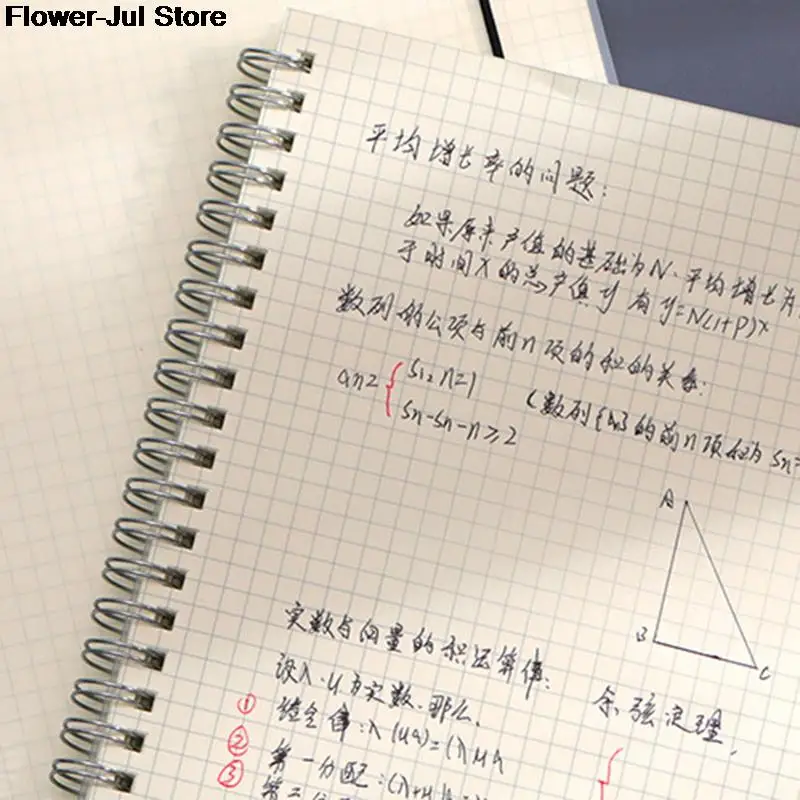 Flower-Jul Store
平均增长率的问题:
如果原来产值的基础为N.平均增长为
于时间X的总产值y有y=N(1+P)x
数列的公项与前n项的和的关系:
an= { S1, n=1
Sn-Sn-n≥2
(数列{an}的前n项和为Sn=
A
B
C
实数与向量的积运算律:
设λ.u为实数.那么.
① 结合律:λ(ua)=(λua
余弦定理,
② 第一分配:(λ+u
③ 第二分